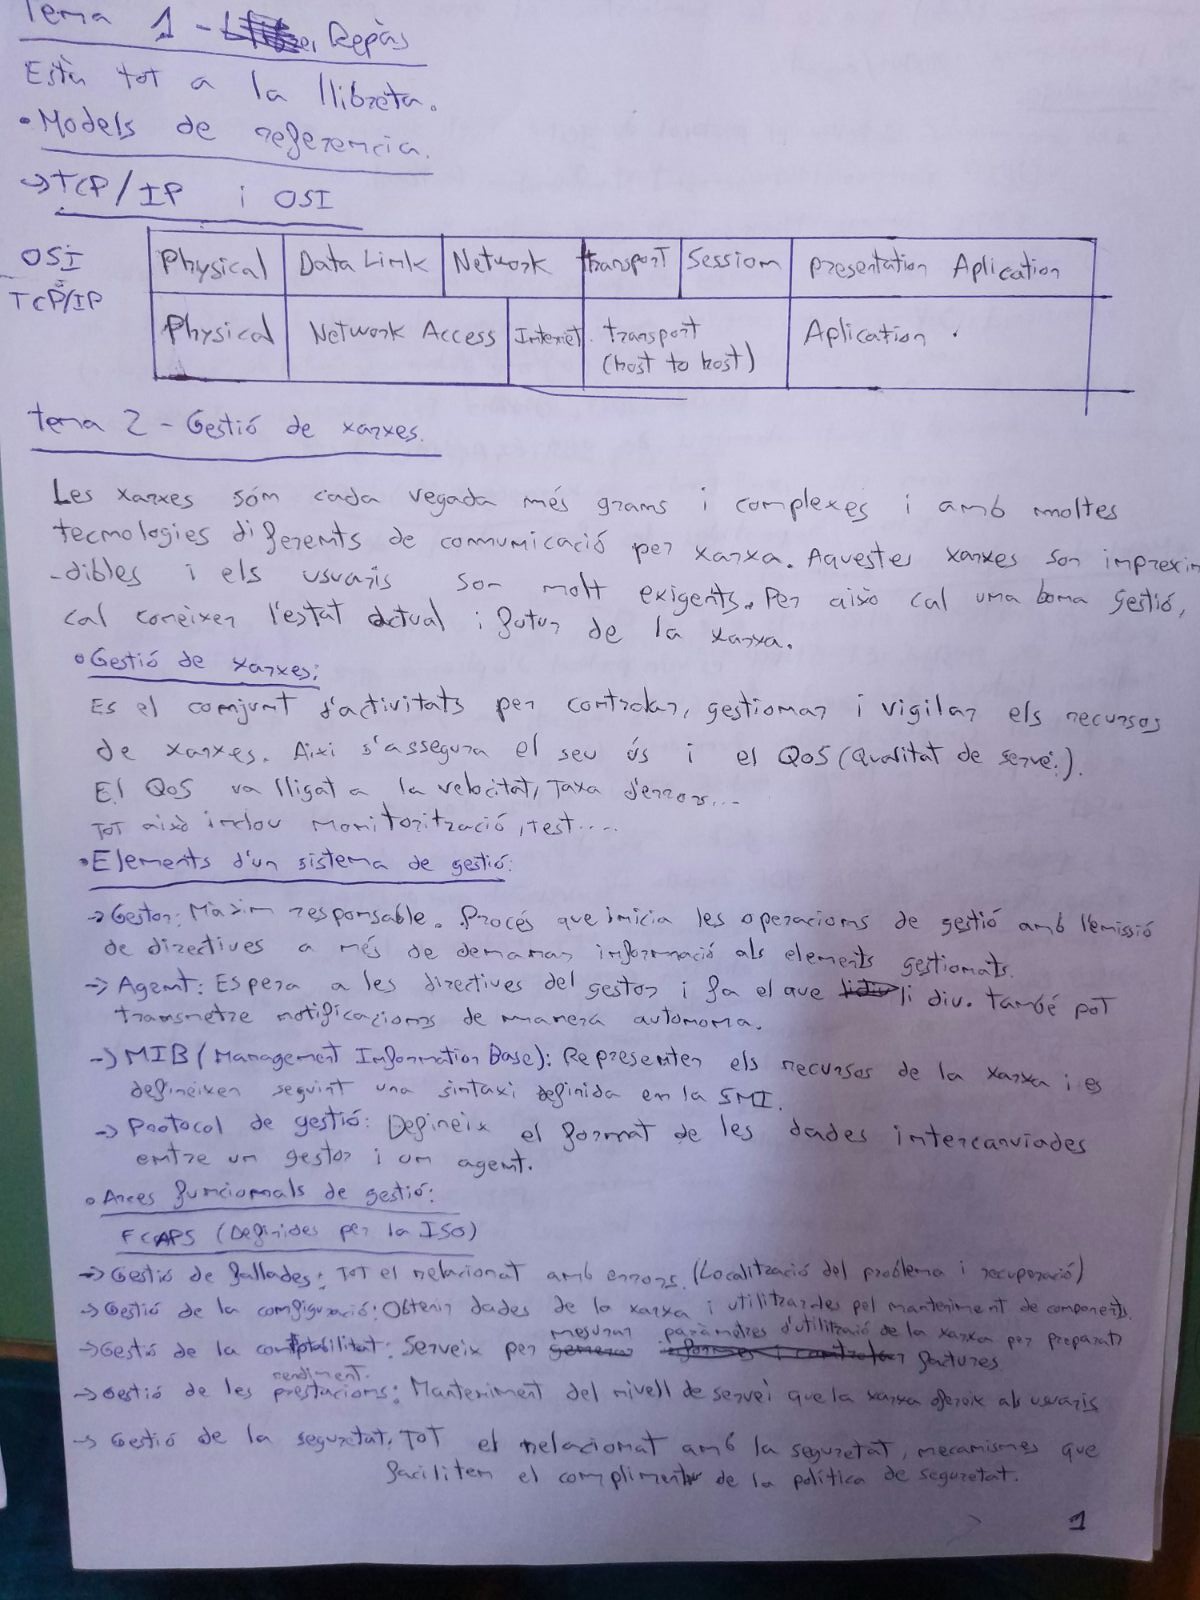 Tema 1 - Repàs
Està tot a la llibreta.
• Models de referencia.
→ TCP/IP i OSI
OSI Physical Data Link Network transport Session presentation Aplication
TCP/IP Physical Network Access Internet transport (host to host) Aplication
tema 2 - Gestió de xarxes.
Les xarxes són cada vegada més grans i complexes i amb moltes
tecnologies diferents de comunicació per xarxa. Aquestes xarxes son imprexin
-dibles i els usuaris son molt exigents. Per això cal una bona gestió,
cal conèixer l'estat actual i futur de la xarxa.
• Gestió de xarxes:
Es el conjunt d'activitats per controlar, gestionar i vigilar els recursos
de xarxes. Aixi s'assegura el seu ús i el QoS (Qualitat de servei).
El QoS va lligat a la velocitat, Taxa d'errors...
Tot això inclou Monitorització, test....
• Elements d'un sistema de gestió:
→ Gestor: Màxim responsable. Procés que inicia les operacions de gestió amb l'emissió
de directives a més de demanar informació als elements gestionats.
→ Agent: Espera a les directives del gestor i fa el que li diu. també pot
transmetre notificacions de manera autonoma.
→ MIB (Management Information Base): Representen els recursos de la xarxa i es
defineixen seguint una sintaxi definida en la SMI.
→ Protocol de gestió: Defineix el format de les dades intercanviades
entre un gestor i un agent.
• Arees funcionals de gestió:
FCAPS (Definides per la ISO)
→ Gestió de fallades: Tot el relacionat amb errors. (Localització del problema i recuperació)
→ Gestió de la configuració: Obtenir dades de la xarxa i utilitzarles pel manteniment de components.
→ Gestió de la comptabilitat: Serveix per mesurar paràmetres d'utilització de la xarxa per preparar factures
rendiment.
→ Gestió de les prestacions: Manteniment del nivell de servei que la xarxa ofereix als usuaris
→ Gestió de la seguretat. Tot el relacionat amb la seguretat, mecanismes que
faciliten el compliment de la política de seguretat.
1